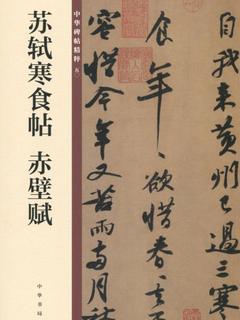 中华碑帖精粹
苏轼寒食帖 赤壁赋
中华书局
自我來黃州已過三寒
食年〻欲惜春〻去不
容惜今年又苦雨兩月秋